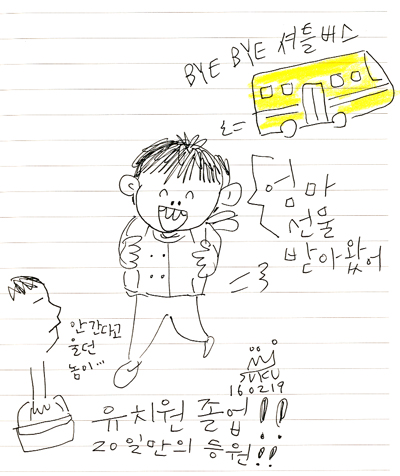 BYE BYE 셔틀버스
엄마
선물
받아왔어
안간다고
울던
놈이...
SUKU
160219
유치원 졸업!!
20일만의 등원!!